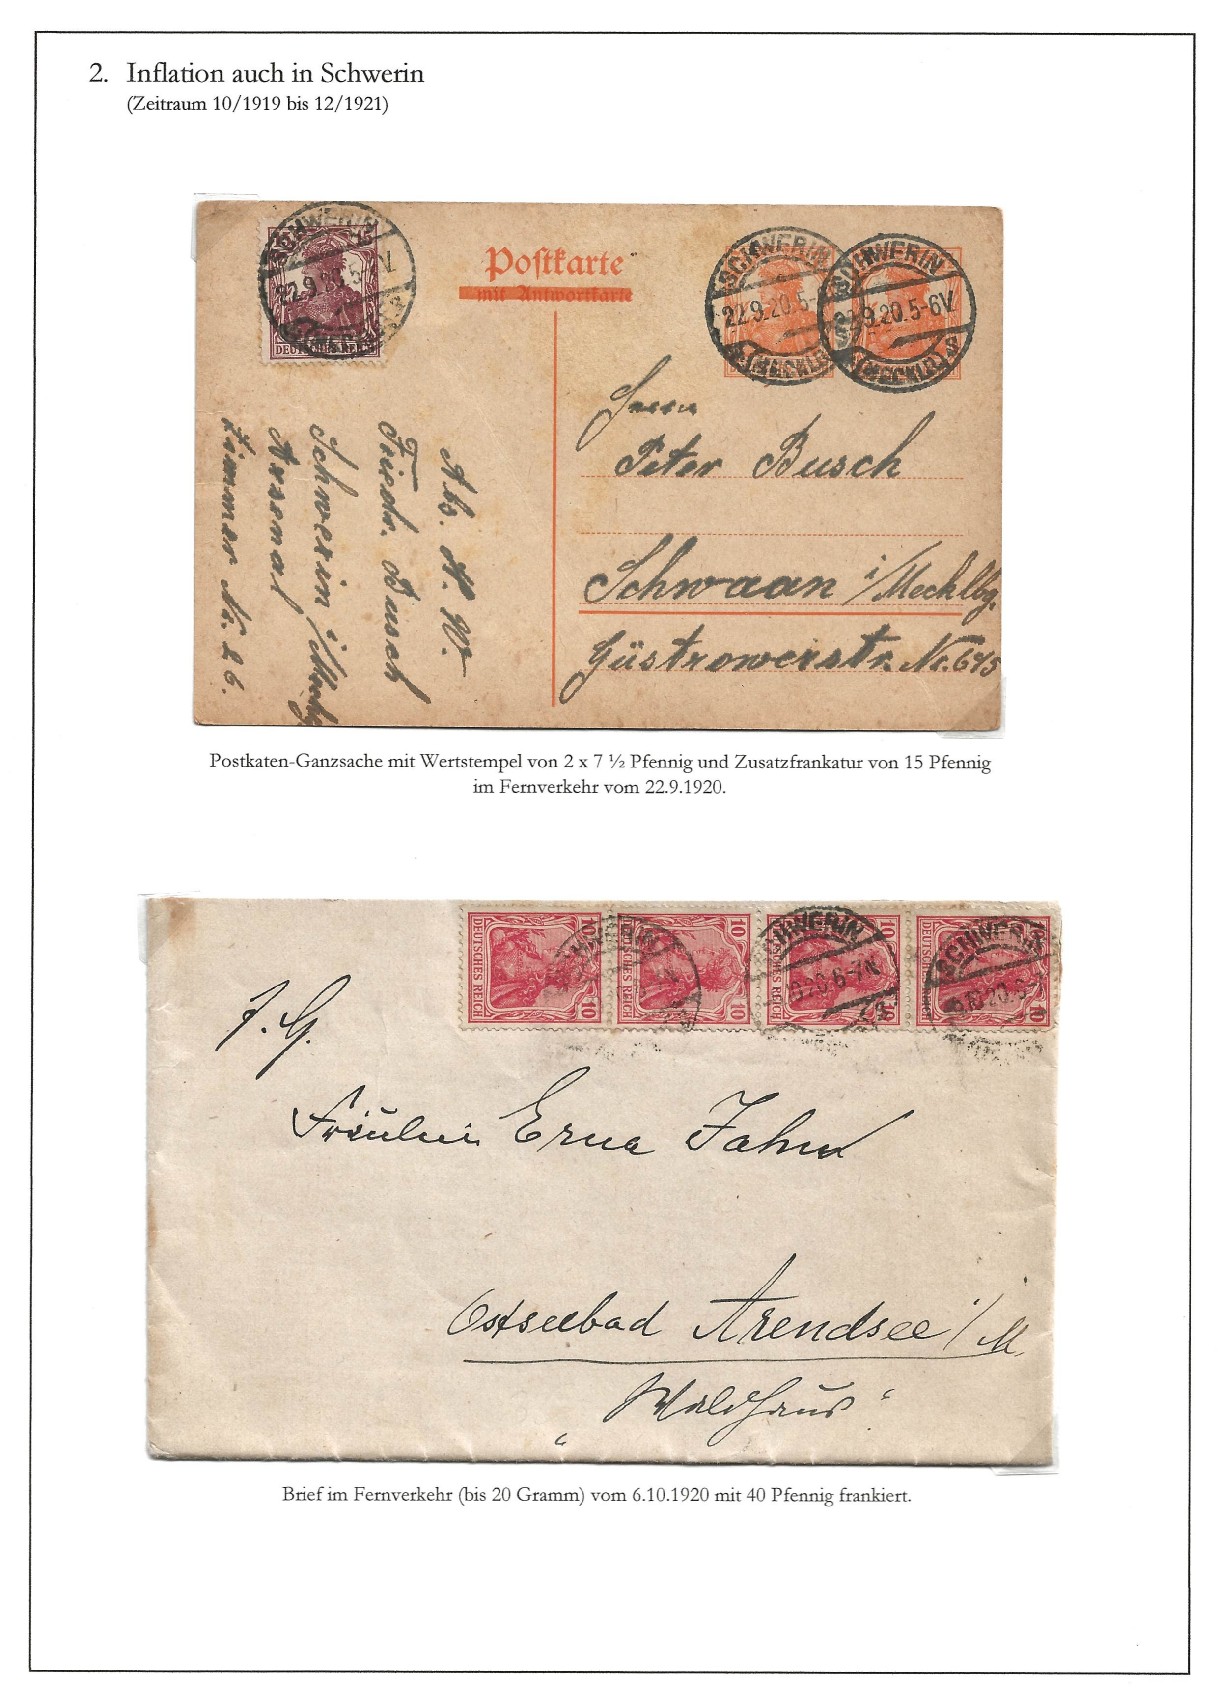 2. Inflation auch in Schwerin
(Zeitraum 10/1919 bis 12/1921)
SCHWERIN
15
22.9.20.5-6V.
DEUTSCHES REICH
Postkarte
mit Antwortkarte
SCHWERIN
22.9.20.5-
(MECKLB)
SCHWERIN
22.9.20.5-6V.
(MECKLB)
Herrn
Peter Busch
Schwaan i/Mecklbg.
Güstrowerstr. Nr. 645
Abs. H. W.
Friedr. Busch
Schwerin i/Meckg
Arsenal
Zimmer Nr. 26.
Postkaten-Ganzsache mit Wertstempel von 2 x 7 ½ Pfennig und Zusatzfrankatur von 15 Pfennig
im Fernverkehr vom 22.9.1920.
10 DEUTSCHES REICH 10
10 DEUTSCHES REICH 10
10 DEUTSCHES REICH 10
10 DEUTSCHES REICH 10
SCHWERIN
SCHWERIN
10 20.6-7N.
SCHWERIN
6.10 20.6
Fräulein Erna Jahn
Ostseebad Arendsee/M.
"Waldhaus"
Brief im Fernverkehr (bis 20 Gramm) vom 6.10.1920 mit 40 Pfennig frankiert.